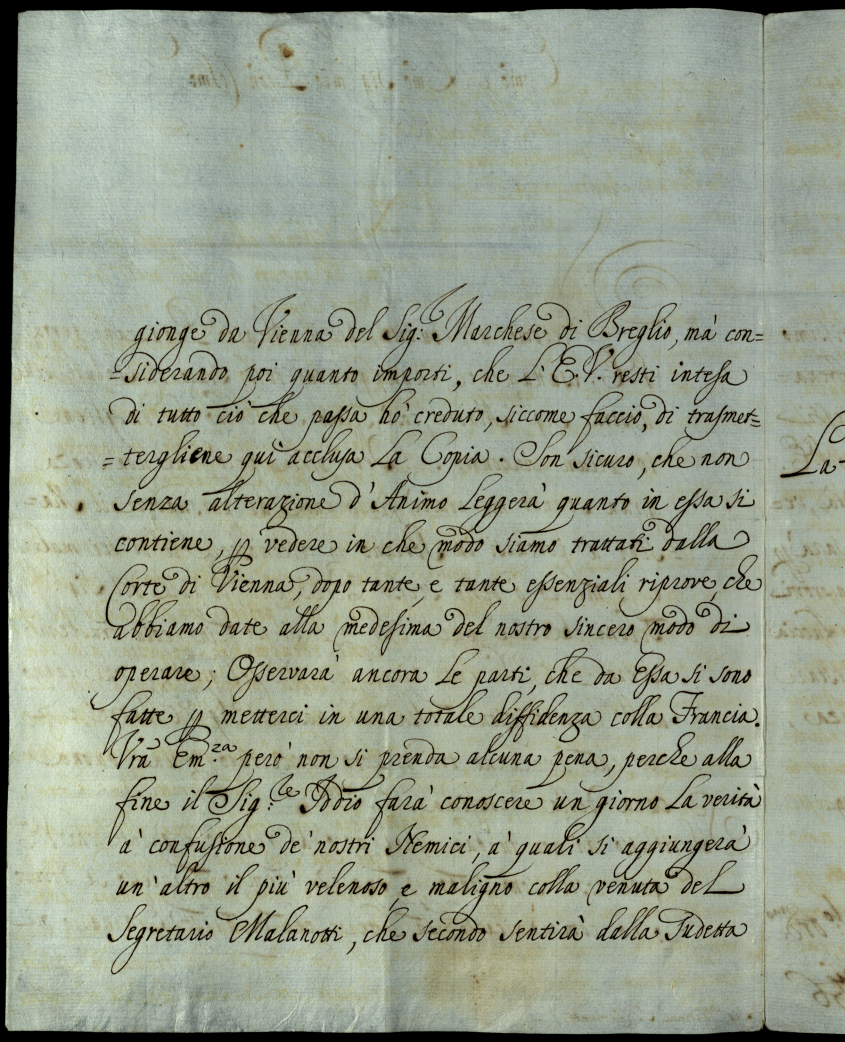 gionge da Vienna del Sig:r Marchese di Breglio, mà con=
=siderando poi quanto importi, che L'E.V. resti intesa
di tutto ciò che passa hò creduto, siccome faccio, di trasmet=
=tergliene quì acclusa La Copia. Son sicuro, che non
senza alterazione d'Animo Leggerà quanto in essa si
contiene, p vedere in che modo siamo trattati dalla
Corte di Vienna, dopo tante, e tante essenziali riprove, che
abbiamo date alla medesima del nostro sincero modo di
operare; Osservarà ancora Le parti, che da Essa si sono
fatte p metterci in una totale diffidenza colla Francia.
Vrã Em:za però non si prenda alcuna pena, perche alla
fine il Sig:re Iddio farà conoscere un giorno La verità
à confusione de' nostri Nemici, à quali si aggiungerà
un'altro il più velenoso, e maligno colla venuta del
Segretario Malanotti, che secondo sentirà dalla Sudetta
La